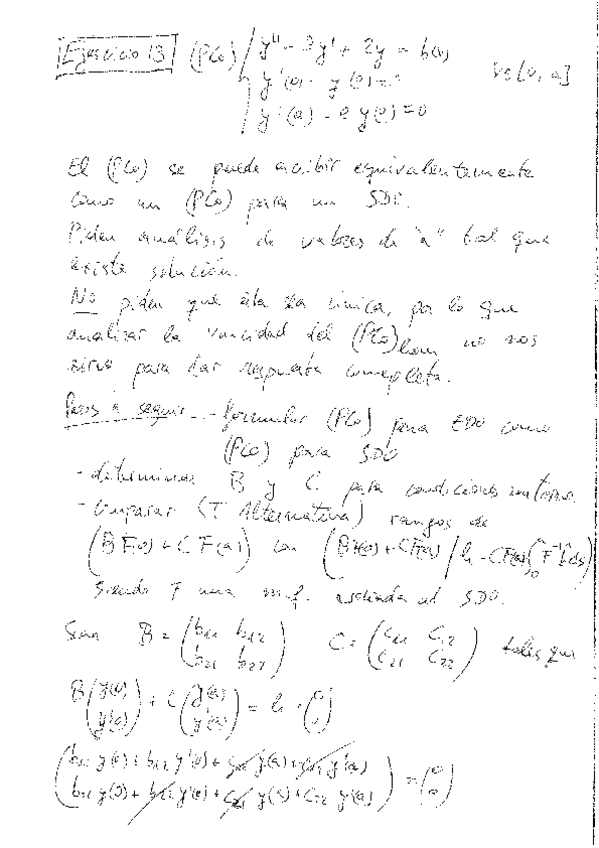 Ejercicio 13 (PCo) { y'' - 3y' + 2y = b(x)
y'(0) - y(0) = 0 x∈[0, a]
y'(a) - 2y(a) = 0
El (PCo) se puede escribir equivalentemente
como un (PCo) para un SDO.
Piden análisis de valores de "a" tal que
existe solución.
No piden que ésta sea única, por lo que
analizar la unicidad del (PCo)hom no nos
sirve para dar respuesta completa.
Pasos a seguir - formular (PCo) para EDO como
(PCo) para SDO
- determinar B y C para condiciones contorno.
- comparar (T. Alternativa) rangos de
(B F(0) + C F(a)) con (BF(0) + CF(a) / h - CF(a)∫₀ᵃ F⁻¹ b ds)
siendo F una m.f. asociada al SDO.
Sean B = (b11 b12 / b21 b22) C = (c11 c12 / c21 c22) tales que
B (y(0) / y'(0)) + C (y(a) / y'(a)) = h = (0 / 0)
(b11 y(0) + b12 y'(0) + c11 y(a) + c12 y'(a)
b21 y(0) + b22 y'(0) + c21 y(a) + c22 y'(a)) = (0 / 0)